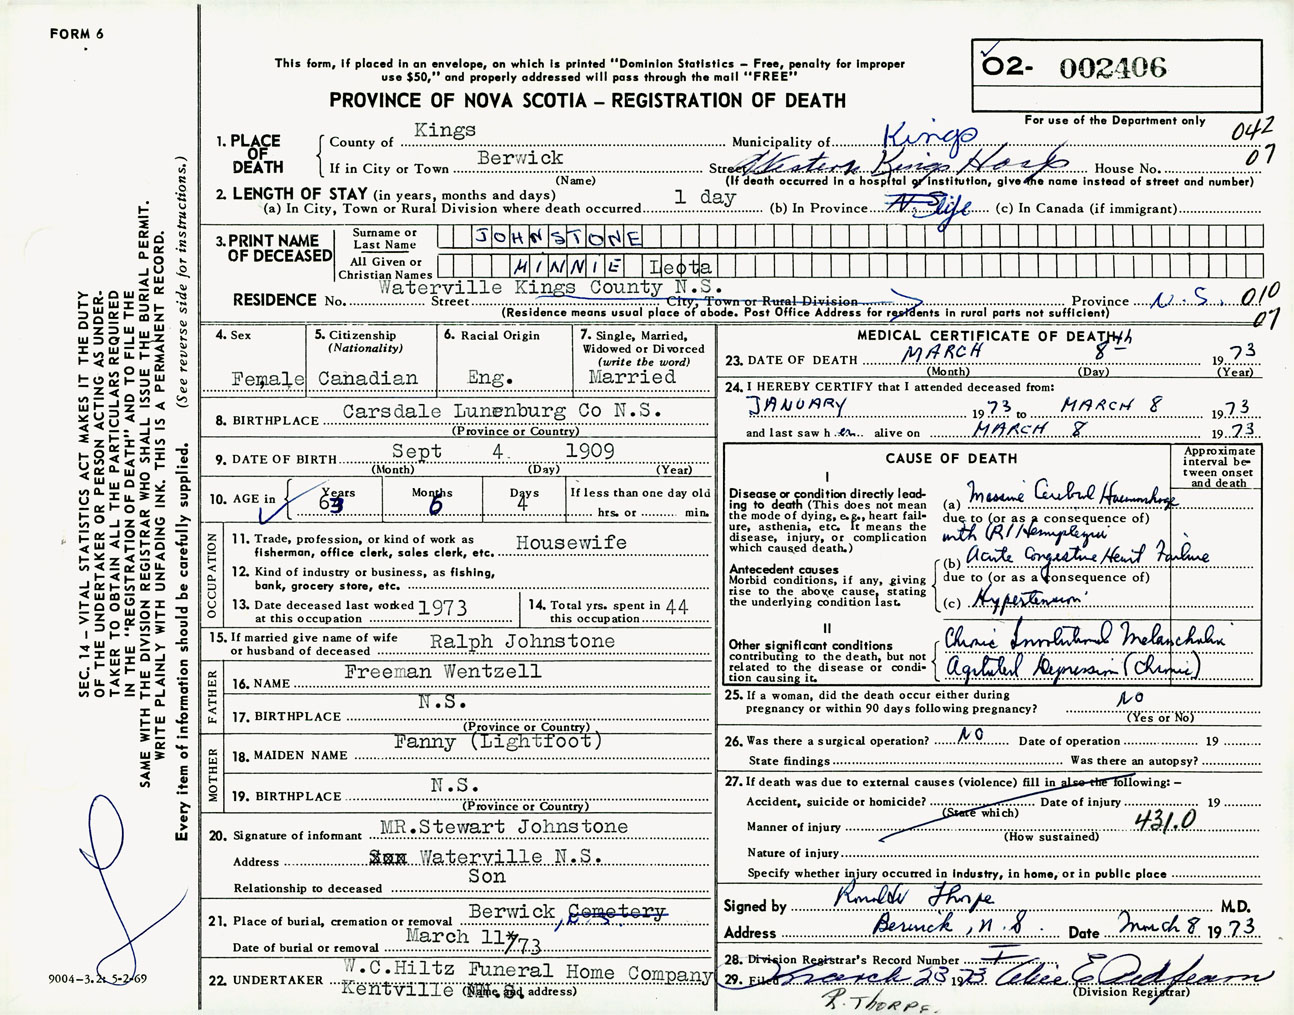 FORM 6
This form, if placed in an envelope, on which is printed "Dominion Statistics – Free, penalty for improper
use $50," and properly addressed will pass through the mail "FREE"
PROVINCE OF NOVA SCOTIA – REGISTRATION OF DEATH
02- 002406
For use of the Department only
042
07
1. PLACE OF DEATH
County of Kings Municipality of Kings
If in City or Town Berwick Street Western Kings Hosp House No.
(Name) (If death occurred in a hospital or institution, give the name instead of street and number)
2. LENGTH OF STAY (in years, months and days)
(a) In City, Town or Rural Division where death occurred 1 day (b) In Province N.S. life (c) In Canada (if immigrant)
3. PRINT NAME OF DECEASED
Surname or Last Name JOHNSTONE
All Given or Christian Names MINNIE Leota
Waterville Kings County N.S.
RESIDENCE No. Street City, Town or Rural Division Province N.S. 010
07
(Residence means usual place of abode. Post Office Address for residents in rural parts not sufficient)
4. Sex
Female
5. Citizenship
(Nationality)
Canadian
6. Racial Origin
Eng.
7. Single, Married,
Widowed or Divorced
(write the word)
Married
8. BIRTHPLACE Carsdale Lunenburg Co N.S.
(Province or Country)
9. DATE OF BIRTH Sept 4 1909
(Month) (Day) (Year)
10. AGE in Years 63 Months 6 Days 4 If less than one day old
hrs. or min.
OCCUPATION
11. Trade, profession, or kind of work as
fisherman, office clerk, sales clerk, etc. Housewife
12. Kind of industry or business, as fishing,
bank, grocery store, etc.
13. Date deceased last worked
at this occupation 1973
14. Total yrs. spent in
this occupation 44
15. If married give name of wife
or husband of deceased Ralph Johnstone
FATHER
16. NAME Freeman Wentzell
17. BIRTHPLACE N.S.
(Province or Country)
MOTHER
18. MAIDEN NAME Fanny (Lightfoot)
19. BIRTHPLACE N.S.
(Province or Country)
20. Signature of informant MR.Stewart Johnstone
Address Waterville N.S.
Relationship to deceased Son
21. Place of burial, cremation or removal Berwick Cemetery N.S.
Date of burial or removal March 11/73
22. UNDERTAKER W.C.Hiltz Funeral Home Company
Kentville N.S.
(Name and address)
MEDICAL CERTIFICATE OF DEATH
23. DATE OF DEATH MARCH 8th 1973
(Month) (Day) (Year)
24. I HEREBY CERTIFY that I attended deceased from:
JANUARY 1973 to MARCH 8 1973
and last saw her alive on MARCH 8 1973
CAUSE OF DEATH
Approximate
interval be-
tween onset
and death
I
Disease or condition directly lead-
ing to death (This does not mean
the mode of dying, e.g., heart fail-
ure, asthenia, etc. It means the
disease, injury, or complication
which caused death.)
Antecedent causes
Morbid conditions, if any, giving
rise to the above cause, stating
the underlying condition last.
(a) Massive Cerebral Haemorrhage
due to (or as a consequence of)
with (R) Hemiplegia
(b) Acute Congestive Heart Failure
due to (or as a consequence of)
(c) Hypertension
II
Other significant conditions
contributing to the death, but not
related to the disease or condi-
tion causing it.
Chronic Involutional Melancholia
Agitated Depression (Chronic)
25. If a woman, did the death occur either during
pregnancy or within 90 days following pregnancy? NO
(Yes or No)
26. Was there a surgical operation? NO Date of operation 19
State findings Was there an autopsy?
27. If death was due to external causes (violence) fill in also the following: –
Accident, suicide or homicide? Date of injury 19
(State which)
Manner of injury 431.0
(How sustained)
Nature of injury
Specify whether injury occurred in industry, in home, or in public place
Signed by Ronald Thorpe M.D.
Address Berwick, N.S. Date March 8 1973
28. Division Registrar's Record Number
29. Filed March 23 1973
(Division Registrar)
R. THORPE.
SEC. 14 – VITAL STATISTICS ACT MAKES IT THE DUTY
OF THE UNDERTAKER OR PERSON ACTING AS UNDER-
TAKER TO OBTAIN ALL THE PARTICULARS REQUIRED
IN THE "REGISTRATION OF DEATH" AND TO FILE THE
SAME WITH THE DIVISION REGISTRAR WHO SHALL ISSUE THE BURIAL PERMIT.
WRITE PLAINLY WITH UNFADING INK. THIS IS A PERMANENT RECORD.
Every item of information should be carefully supplied. (See reverse side for instructions.)
9004-3.2: 5-2-69